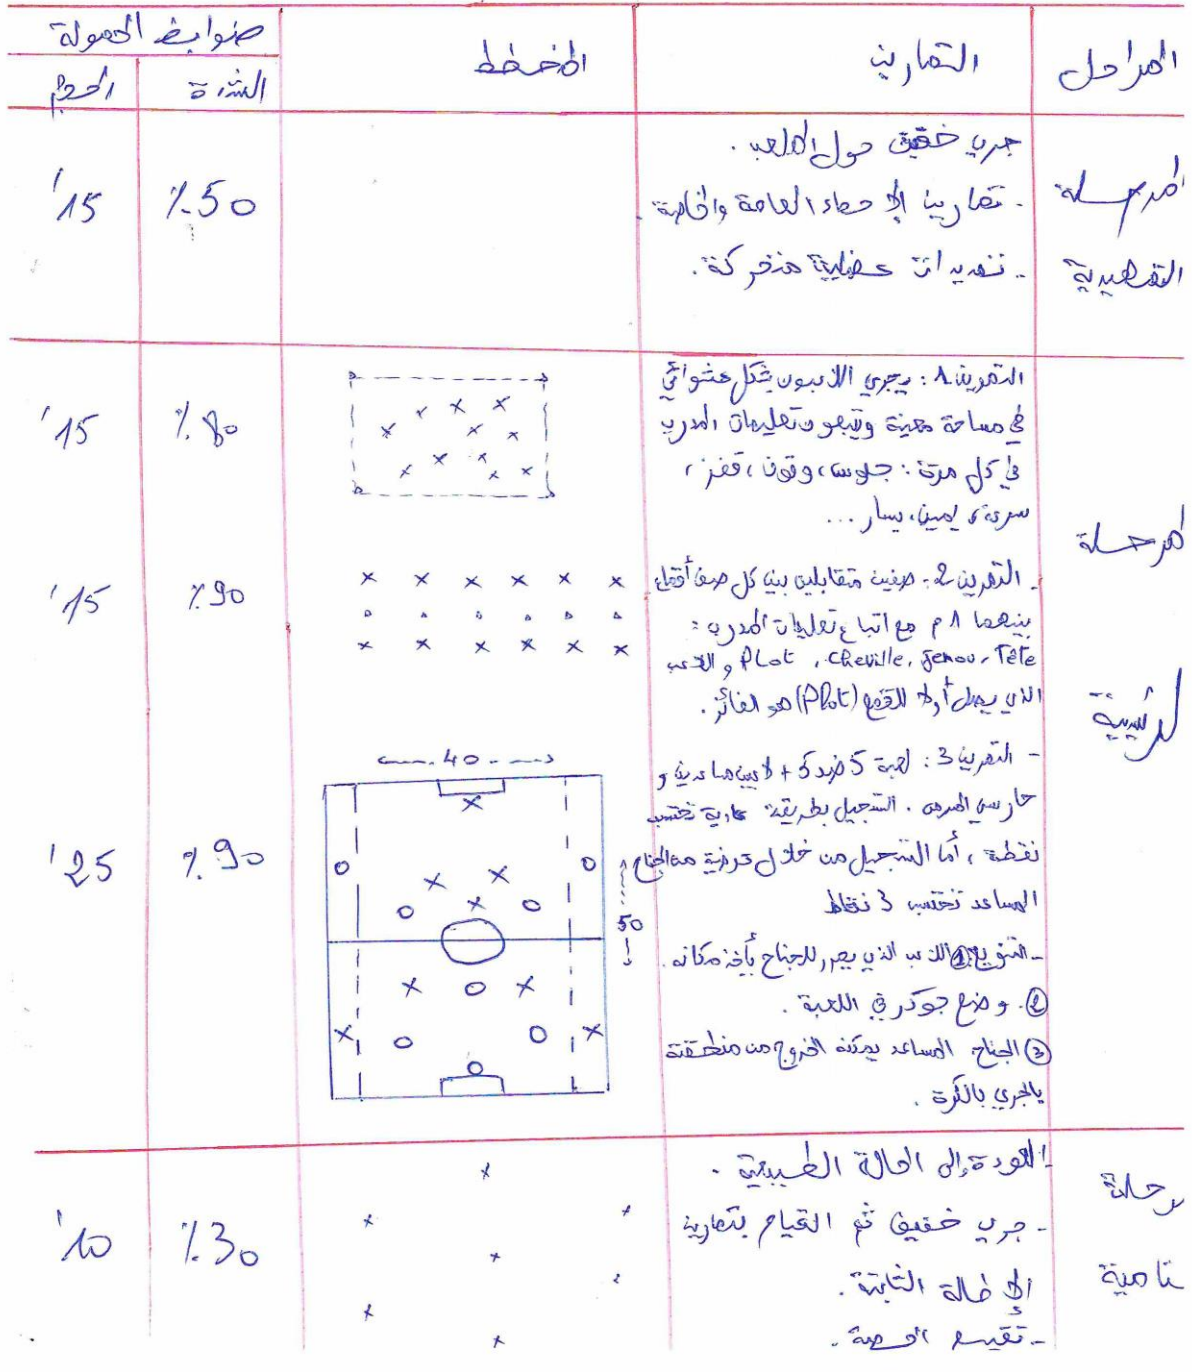 المراحل
التمارين
المخطط
ضوابط الحمولة
الشدة
الحجم
المرحلة
التمهيدية
جري خفيف حول الملعب.
- تمارين الإحماء العامة والخاصة.
- تمديدات عضلية متحركة.
٪50
15'
المرحلة
الرئيسية
التمرين 1: يجري اللاعبون بشكل عشوائي
في مساحة معينة ويتبعون تعليمات المدرب
في كل مرة: جلوس، وقوف، قفز،
سرعة، يمين، يسار ...
٪80
15'
- التمرين 2: صفين متقابلين بين كل صف أقماع
بينهما 1م مع اتباع تعليمات المدرب:
Tête ، Genou ، Cheville ، Plot و اللاعب
الذي يصل أولا للقمع (Plot) هو الفائز.
٪90
15'
- التمرين 3: لعبة 5 ضد 5 + لاعبين مساعدين و
حارسي المرمى. التسجيل بطريقة عادية تحتسب
نقطة، أما التسجيل من خلال عرضية من الجناح
المساعد تحتسب 3 نقاط
- التنويع: ① اللاعب الذي يمرر للجناح يأخذ مكانه.
②. وضع جوكر في اللعبة.
③ الجناح المساعد يمكنه الخروج من منطقته
بالجري بالكرة.
40
50
٪90
25'
رحلة
تامية
- العودة إلى الحالة الطبيعية.
- جري خفيف ثم القيام بتمارين
الإطالة الثابتة.
- تقييم الحصة.
٪30
10'